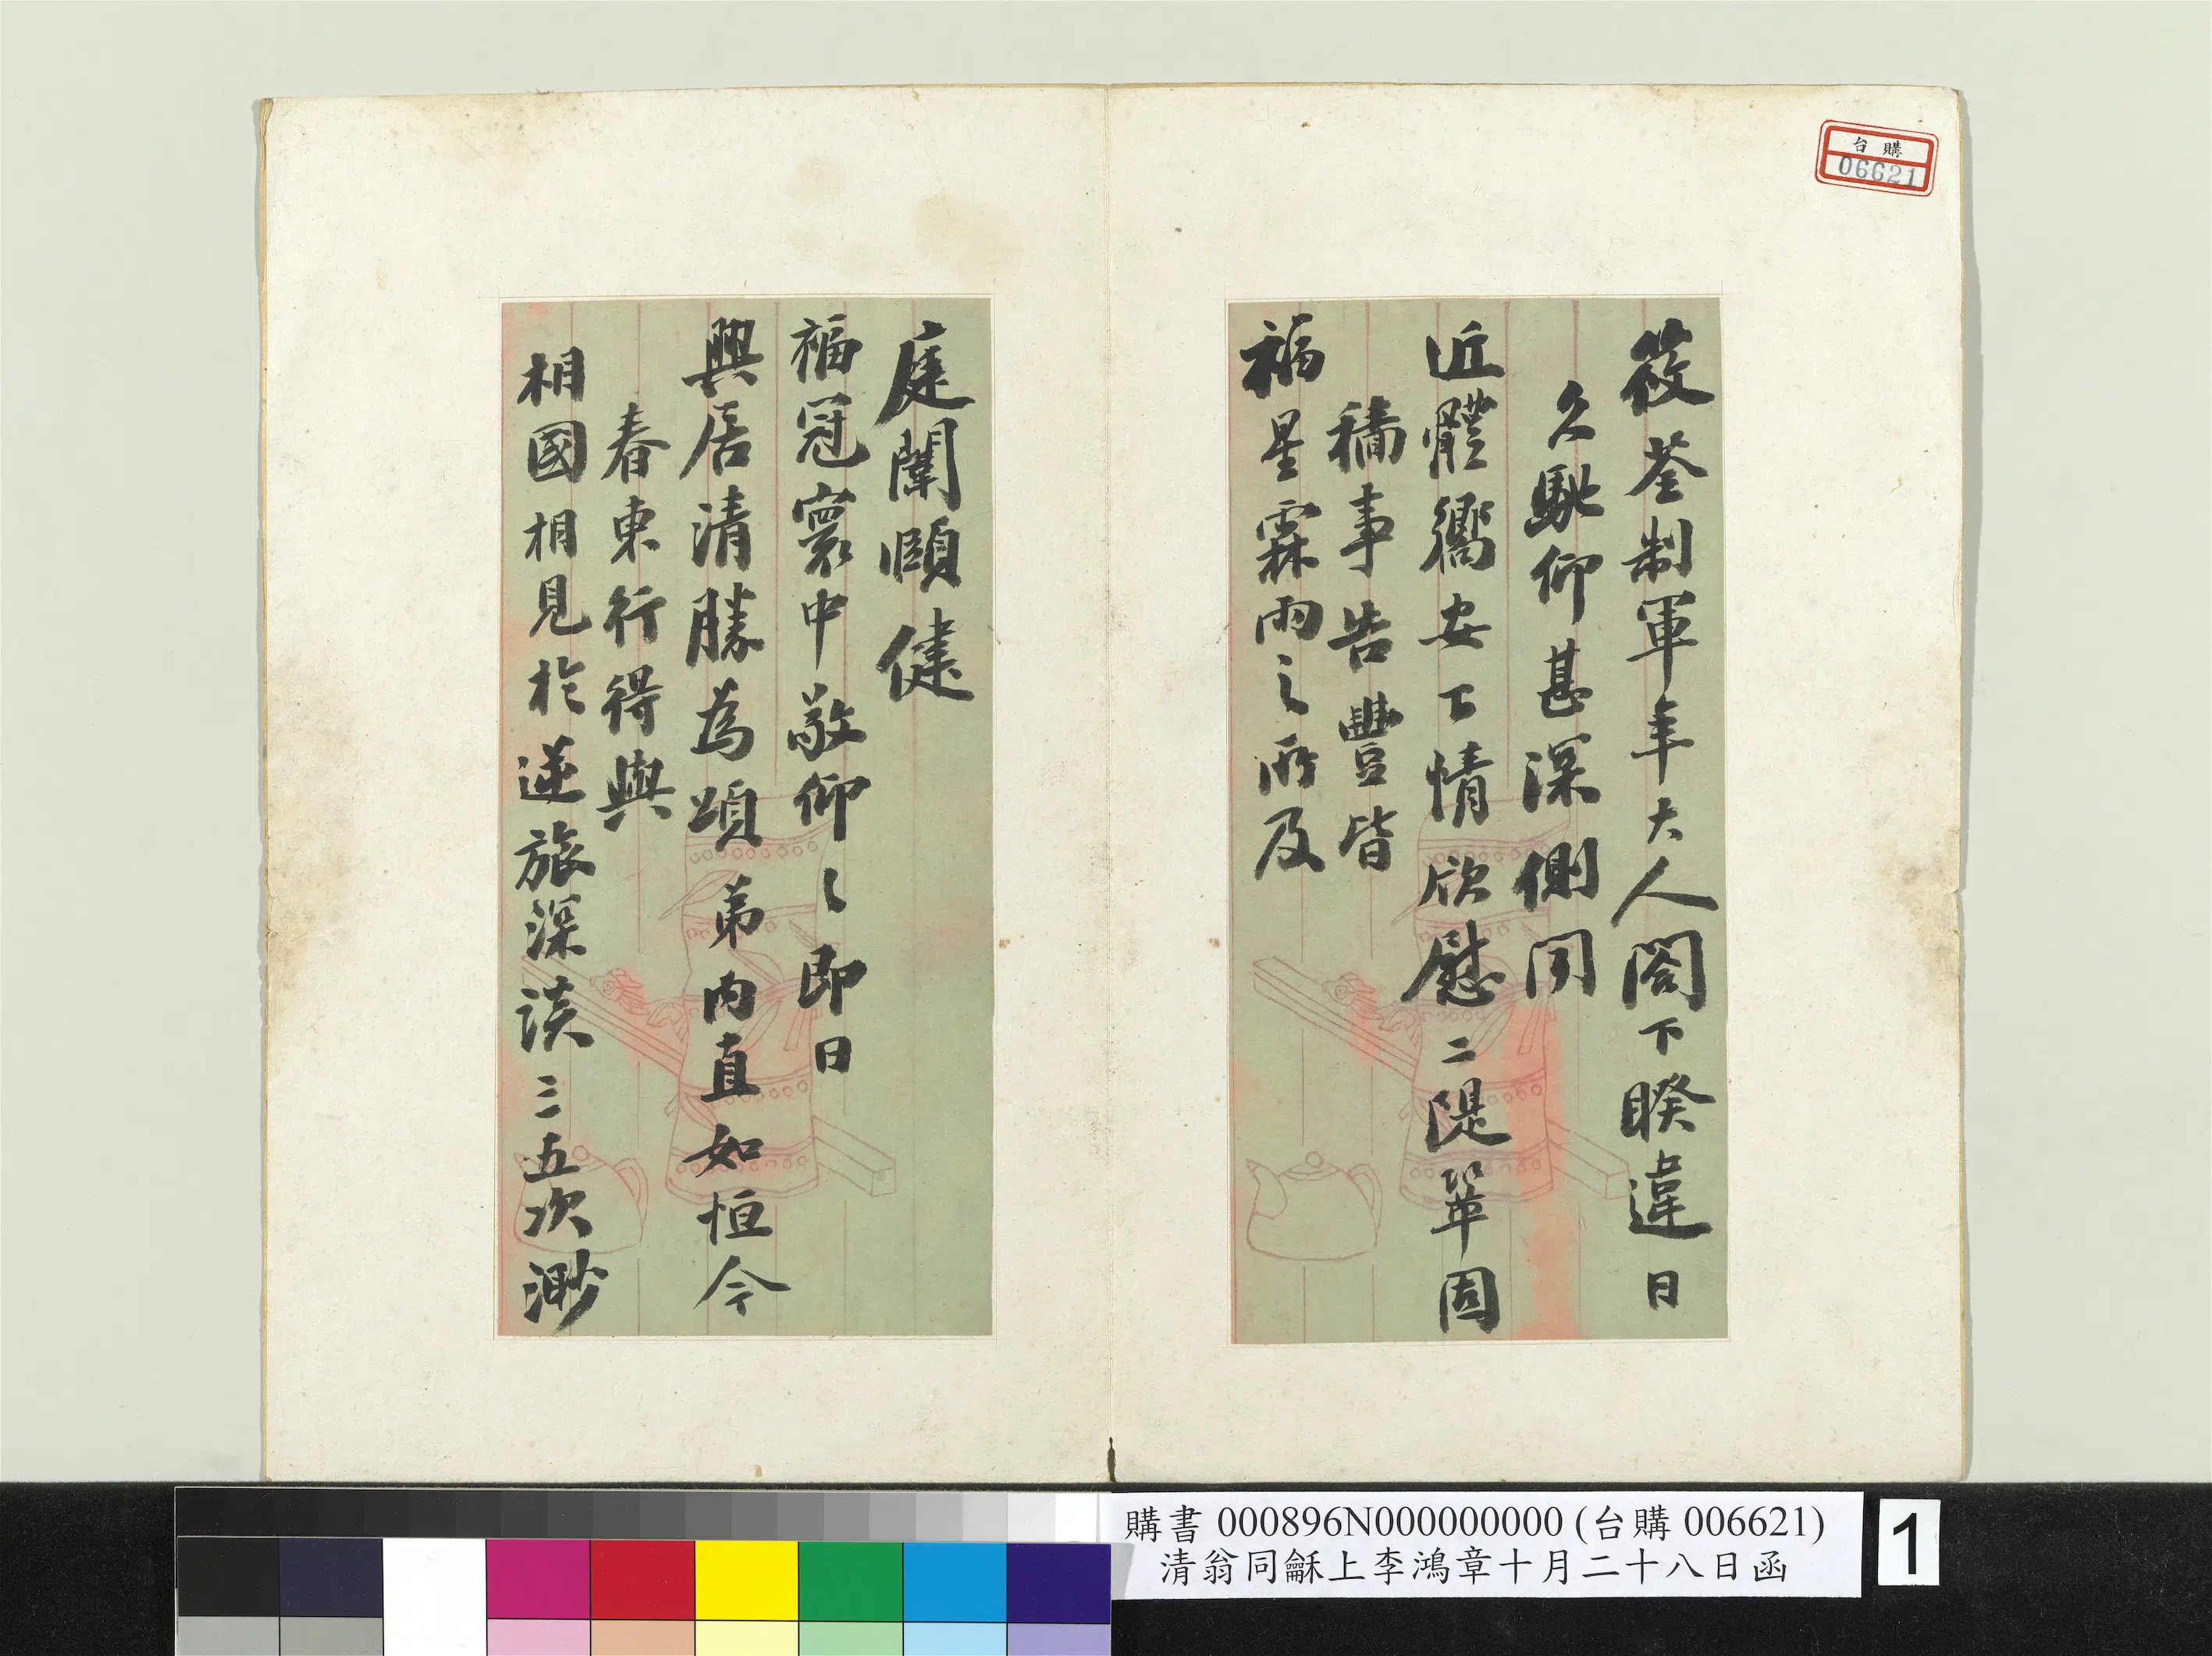 台購
06621
筱荃制軍年大人閣下睽違日
久馳仰甚深側聞
近體嚮安下情欣慰二隄鞏固
穡事告豐皆
福星霖雨之所及
庭闈頤健
福冠寰中敬仰〻即日
興居清勝為頌弟內直如恒今
春東行得與
相國相見於逆旅深談三五次渺
購書 000896N000000000 (台購 006621)
清翁同龢上李鴻章十月二十八日函
1